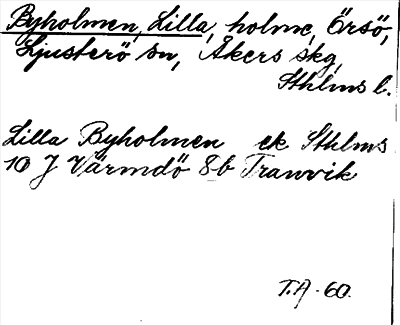 Byholmen, Lilla, holme, Örsö,
Ljusterö sn, Åkers skg,
Sthlms l.
Lilla Byholmen ek Sthlms
10 J Värmdö 8b Tranvik
T.A. 60.